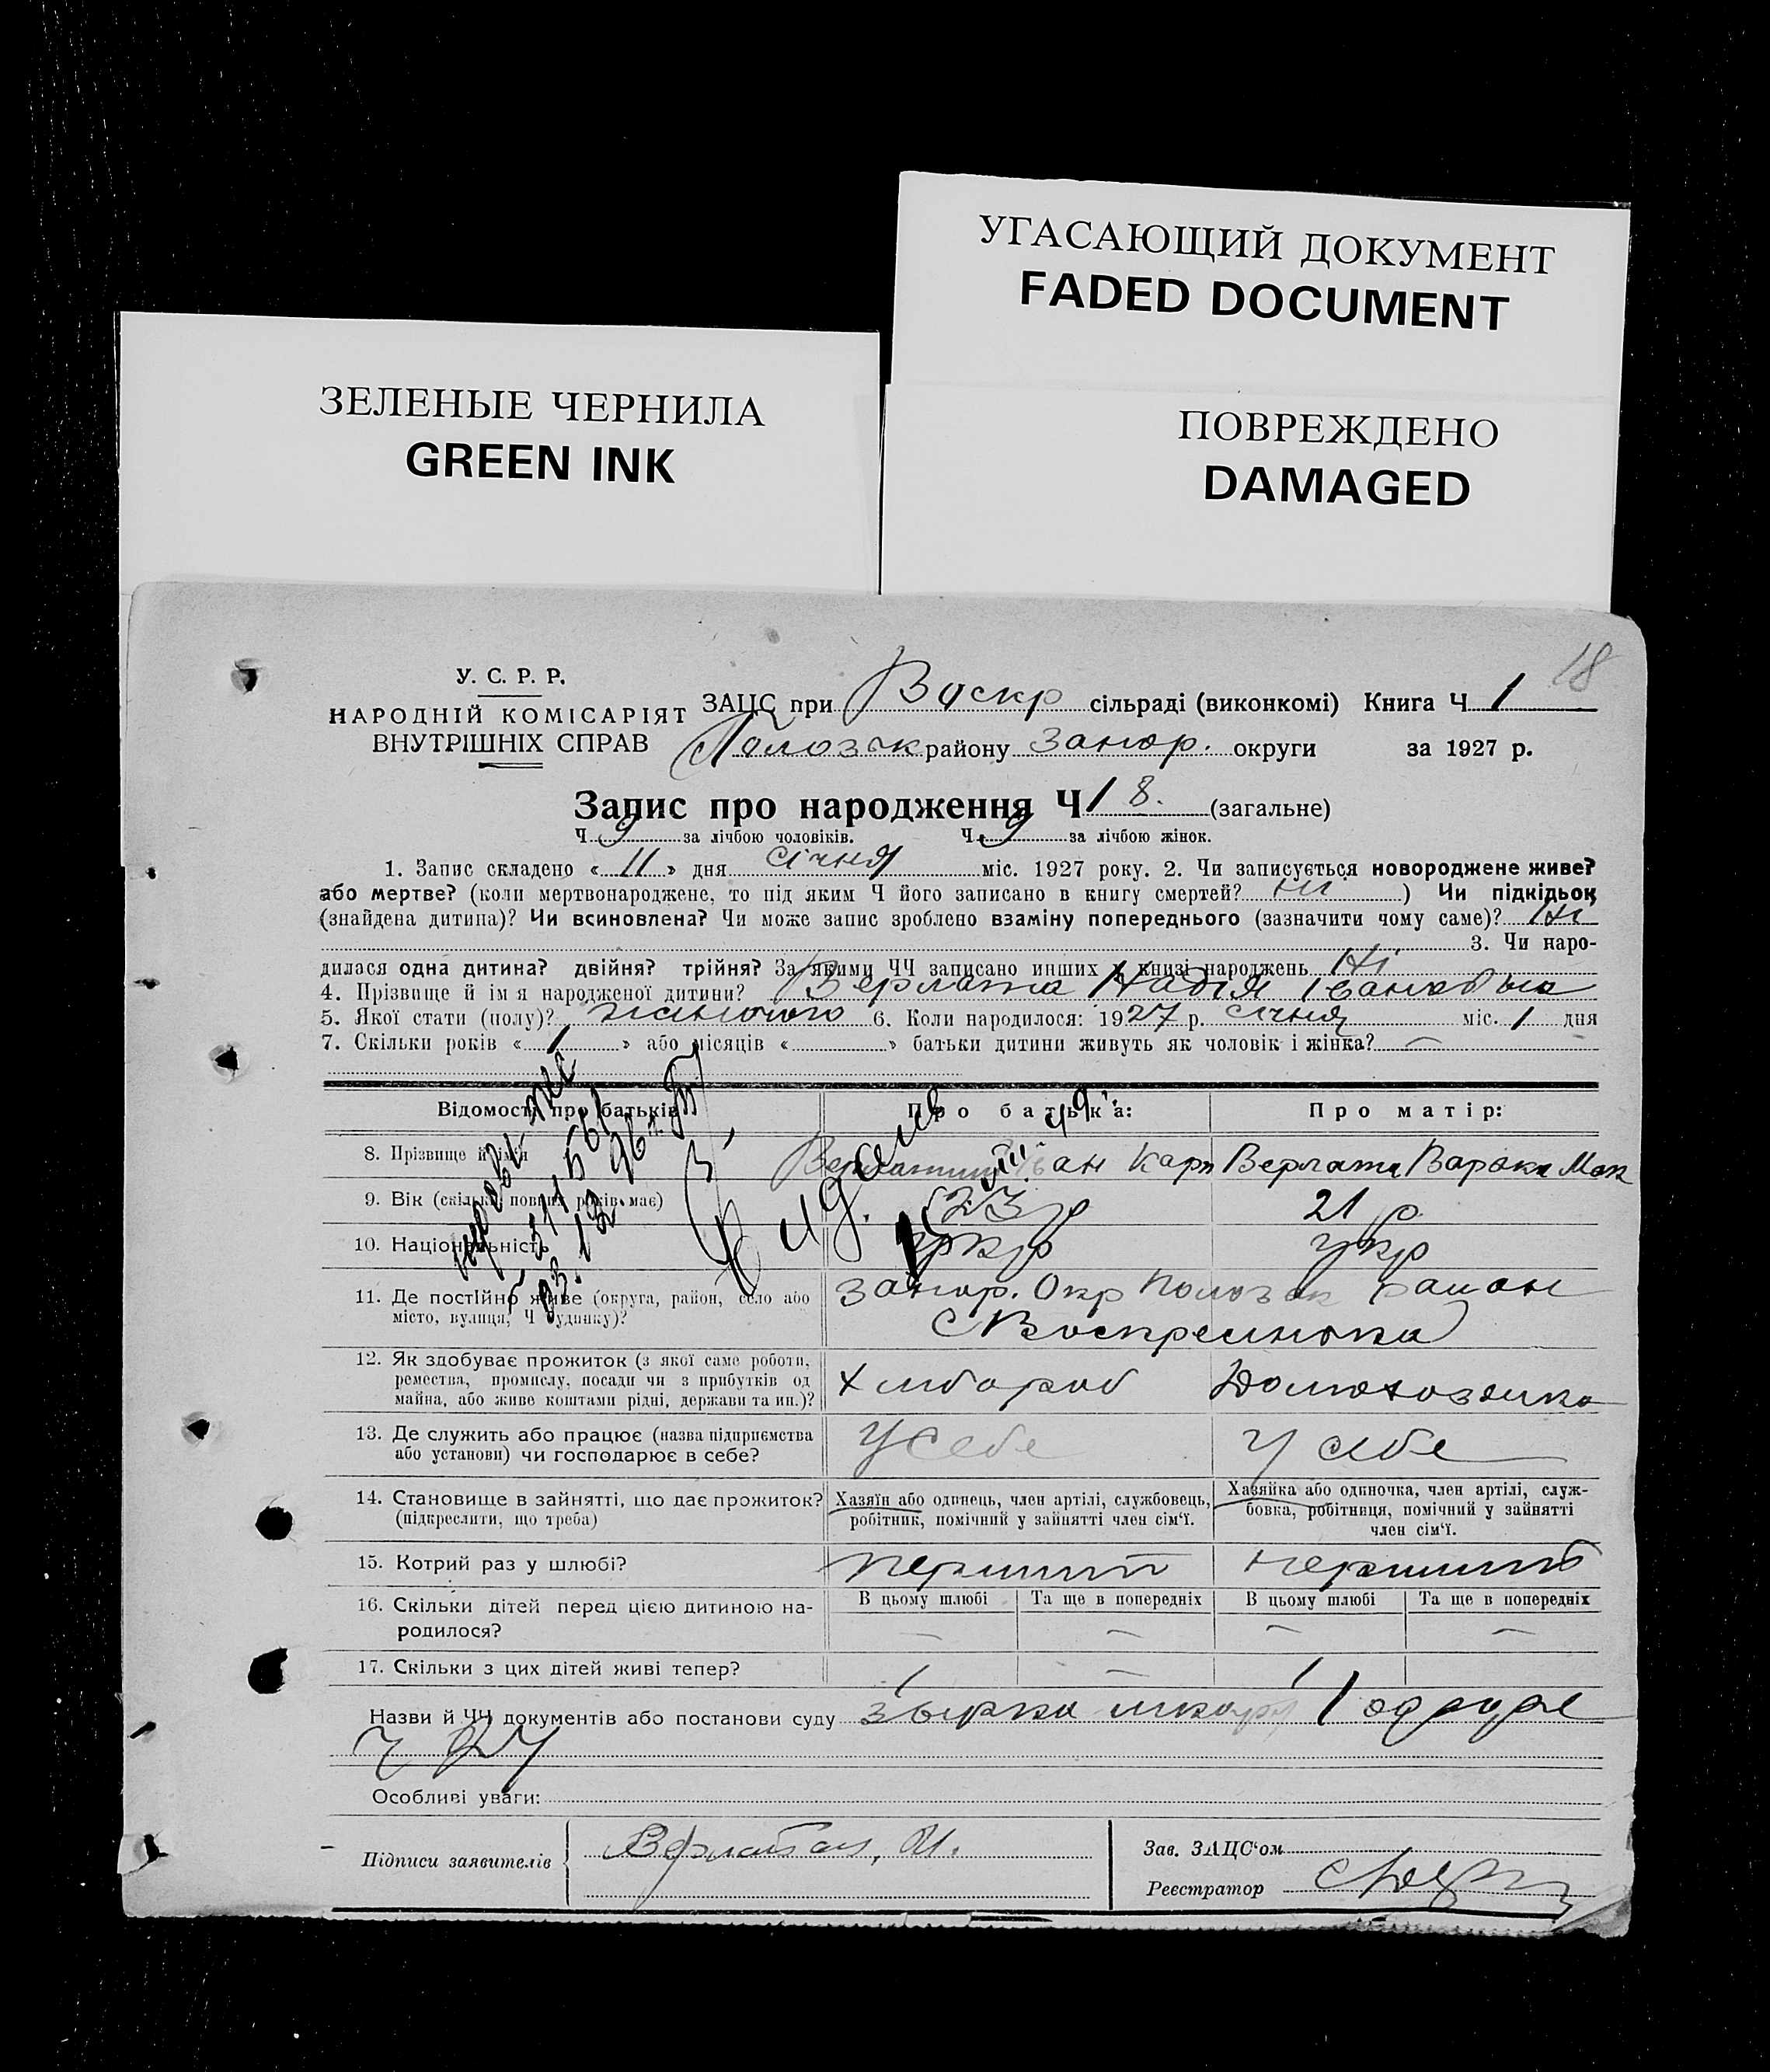 УГАСАЮЩИЙ ДОКУМЕНТ
FADED DOCUMENT
ЗЕЛЕНЫЕ ЧЕРНИЛА
GREEN INK
ПОВРЕЖДЕНО
DAMAGED
18
У. С. Р. Р.
НАРОДНІЙ КОМІСАРІЯТ
ВНУТРІШНІХ СПРАВ
ЗАЦС при Воскр сільраді (виконкомі) Книга Ч 1
Пологзьк району Запор. округи за 1927 р.
Запис про народження Ч 18. (загальне)
Ч 9 за лічбою чоловіків. Ч 9 за лічбою жінок.
1. Запис складено « 11 » дня січня міс. 1927 року. 2. Чи записується новороджене живе?
або мертве? (коли мертвонароджене, то під яким Ч його записано в книгу смертей? ні ) Чи підкідьок
(знайдена дитина)? Чи всиновлена? Чи може запис зроблено взаміну попереднього (зазначити чому саме)? Ні
3. Чи наро-
дилася одна дитина? двійня? трійня? За якими ЧЧ записано инших у книзі народжень Ні
4. Прізвище й ім'я народженої дитини? Верлата Надія Івановна
5. Якої стати (полу)? жіночого 6. Коли народилося: 1927 р. січня міс. 1 дня
7. Скільки років « 1 » або місяців « » батьки дитини живуть як чоловік і жінка? —
Відомості про батьків Про батька: Про матір:
8. Прізвище й ім'я Іван Карп Верлата Варвара Мак
9. Вік (скільки повних років має) 23 р 21 р
10. Національність укр укр
11. Де постійно живе (округа, район, село або Запор. Окр Полозьк район
місто, вулиця, Ч будинку)? С Воскресенька
12. Як здобуває прожиток (з якої саме роботи,
ремества, промислу, посади чи з прибутків од Хлібороб Домохозяйка
майна, або живе коштами рідні, держави та ин.)?
13. Де служить або працює (назва підприємства У себе У себе
або установи) чи господарює в себе?
14. Становище в зайнятті, що дає прожиток? Хазяїн або одинець, член артілі, службовець, Хазяйка або одиночка, член артілі, служ-
(підкреслити, що треба) робітник, помічний у зайнятті член сім'ї. бовка, робітниця, помічний у зайнятті
член сім'ї.
15. Котрий раз у шлюбі? перший перший
16. Скільки дітей перед цією дитиною на- В цьому шлюбі Та ще в попередніх В цьому шлюбі Та ще в попередніх
родилося? — — — —
17. Скільки з цих дітей живі тепер? 1 — 1
Назви й ЧЧ документів або постанови суду
Особливі уваги:
Підписи заявителів И.
Зав. ЗАЦС'ом
Реєстратор